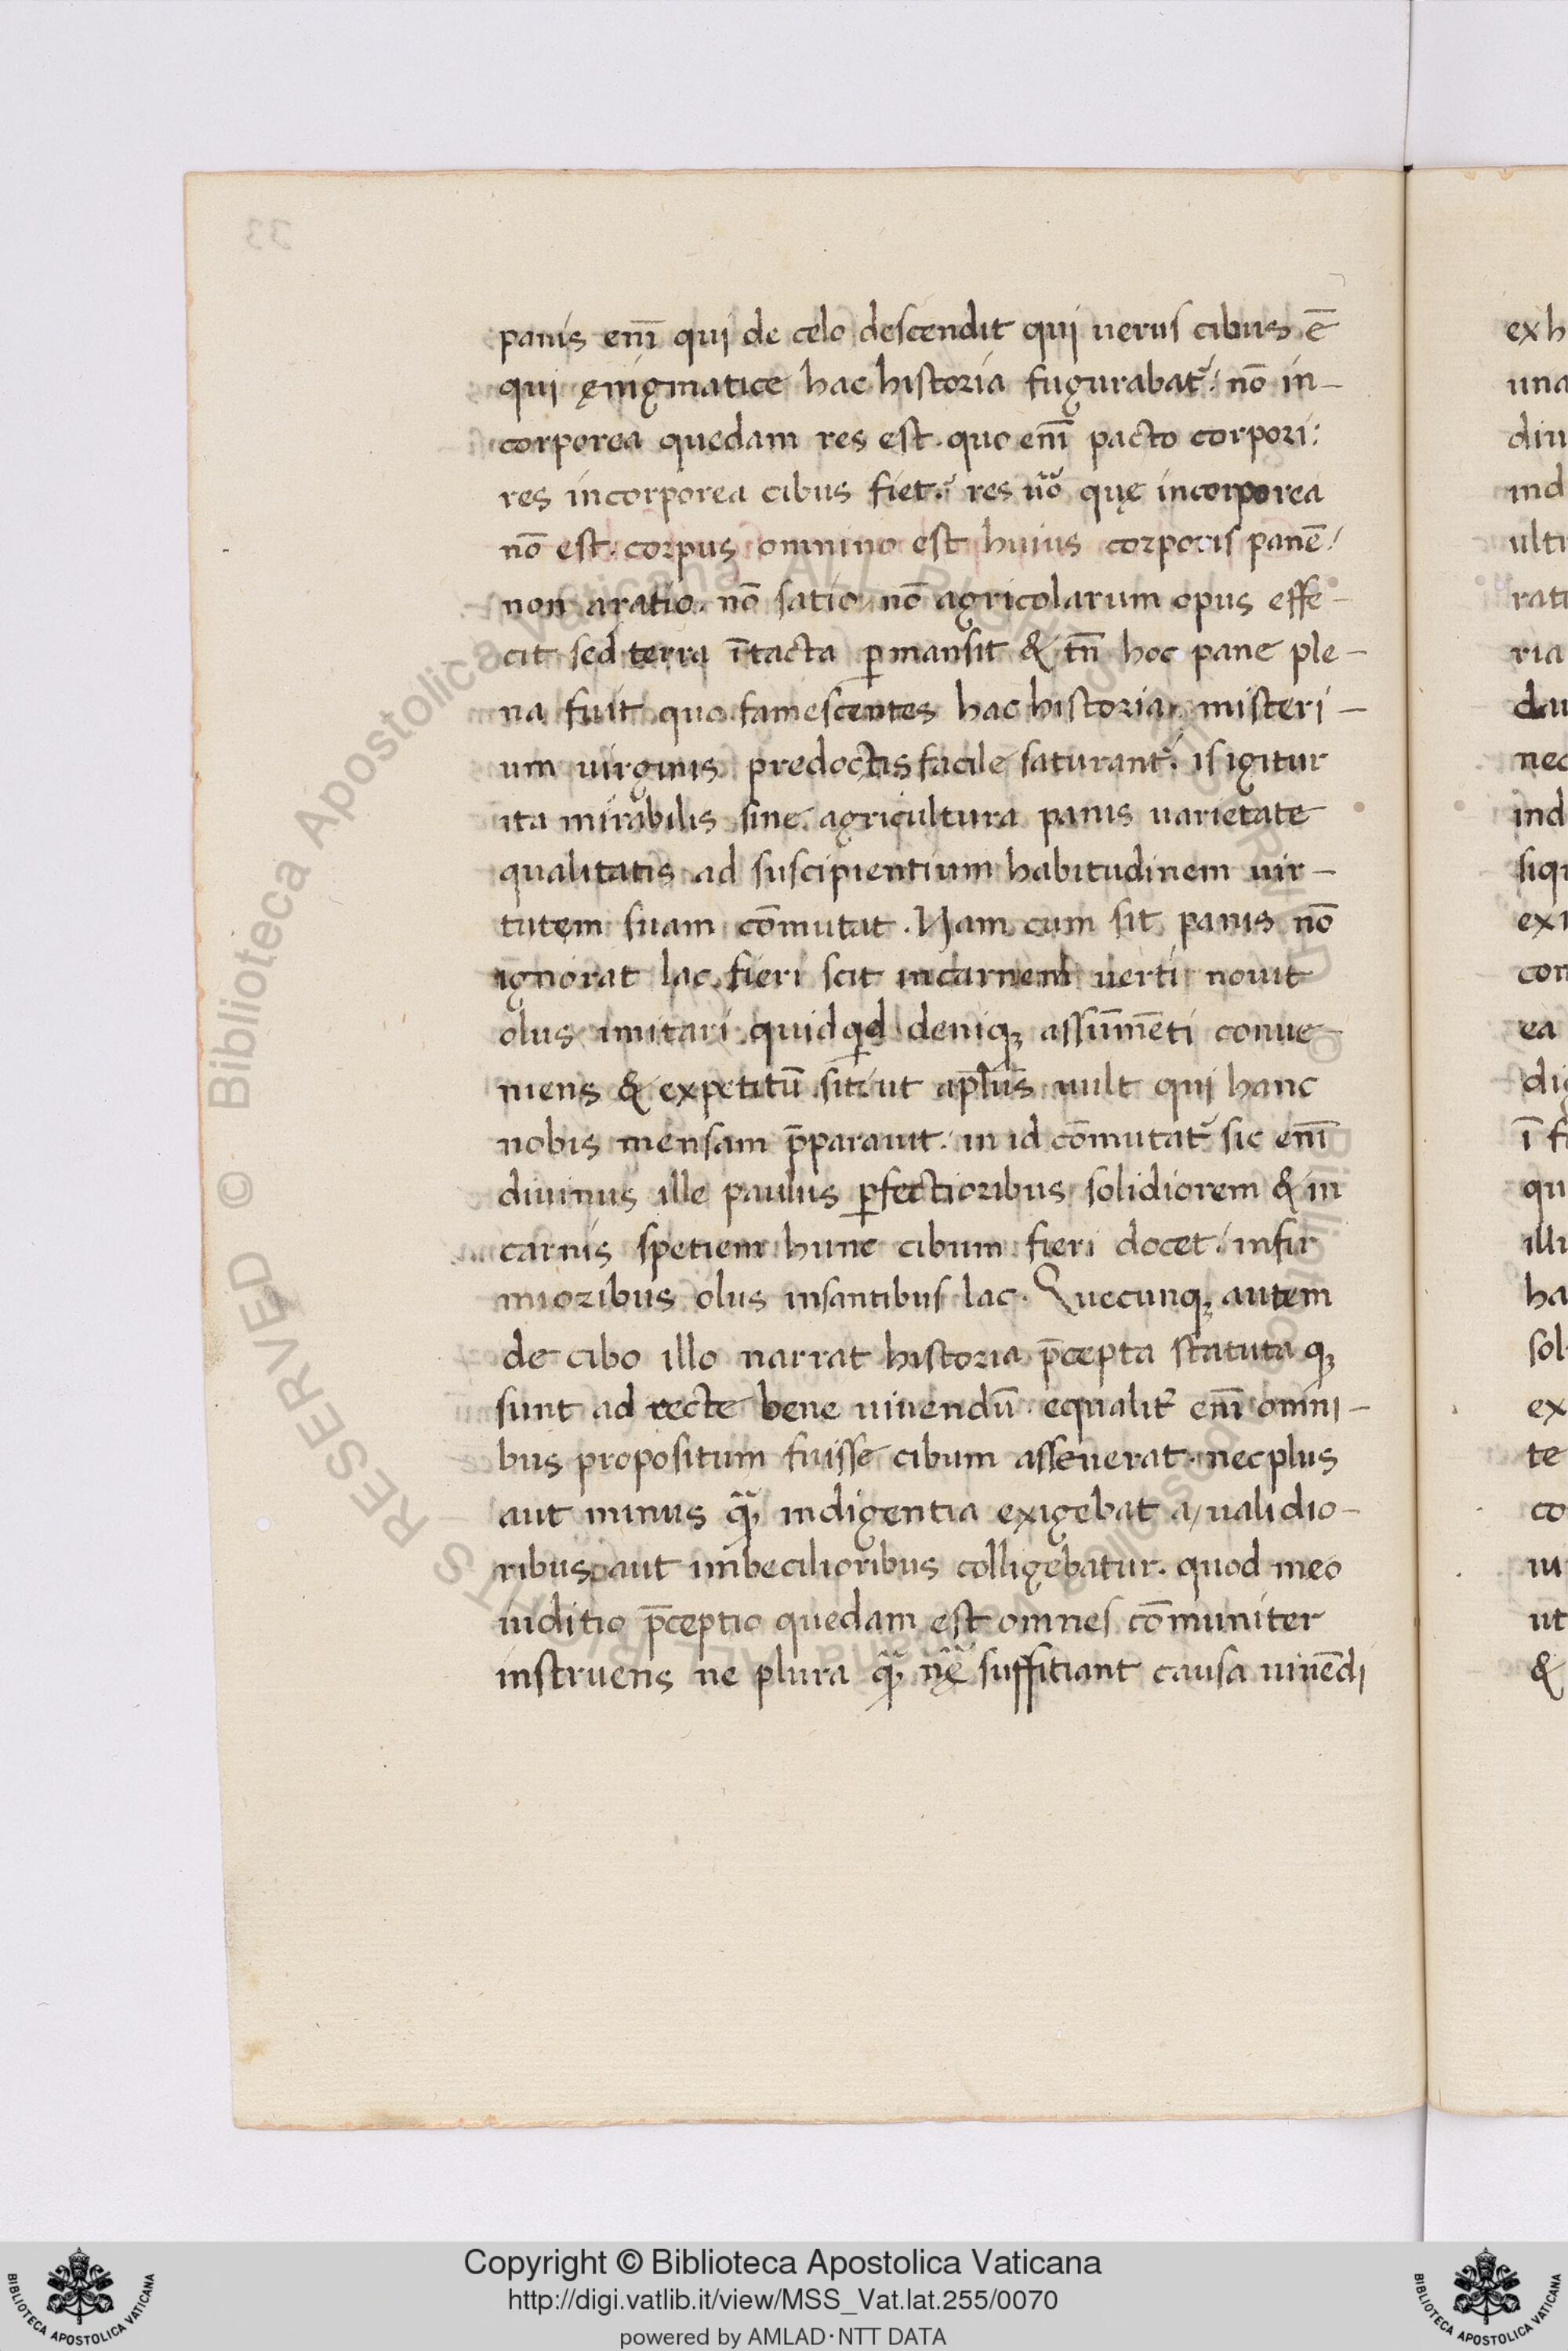 panis enī qui de celo descendit qui uerus cibus ē
qui ęnigmatice hac historia fugurabat᷑: nō in-
corporea quedam res est. quo enī pacto corpori:
res incorporea cibus fiet. res uō quę incorporea
nō est. corpus omnino est huius corporis panē:
non aratio. nō satio. nō agricolarum opus effe-
cit sed terra ītacta ꝑmansit & tn̄ hoc pane ple-
na fuit quo famescentes hac historia misteri-
um uirginis predoctis facile saturant᷑. is igitur
ita mirabilis sine agricultura panis uarietate
qualitatis ad suscipientium habitudinem uir-
tutem suam cōmutat. Nam cum sit panis nō
ignorat lac fieri scit incarnem uerti nouit
olus imitari quidqd deniqꝫ assūmēti conue-
niens & expetitū sit: ut apl̄us uult qui hanc
nobis mensam p̄parauit. in id cōmutat᷑ sic enī
diuinus ille paulus ꝑfectioribus solidiorem & in
carnis spetiem hunc cibum fieri docet: infir
mioribus olus insantibus lac. Quecunqꝫ autem
de cibo illo narrat historia p̄cepta statuta qꝫ
sunt ad recte bene uiuendū. equalit᷑ enī omni-
bus propositum fuisse cibum asseuerat. nec plus
aut minus qᷓꝫ indigentia exigebat a ualidio-
ribus aut imbecilioribus colligebatur. quod meo
iuditio p̄ceptio quedam est omnes cōmuniter
instruens ne plura qᷓꝫ nę suffitiant causa uiuēdi
33
exh
una
diu
ind
ulti
rati
ria
du
nec
ind
siqu
exi
con
ea
dig
ī fi
qu
illi
ha
sol
ex
te
co
iu
ut
&
© Biblioteca Apostolica Vaticana ALL RIGHTS RESERVED
Copyright © Biblioteca Apostolica Vaticana
http://digi.vatlib.it/view/MSS_Vat.lat.255/0070
powered by AMLAD·NTT DATA
BIBLIOTECA APOSTOLICA VATICANA
BIBLIOTECA APOSTOLICA VATICANA